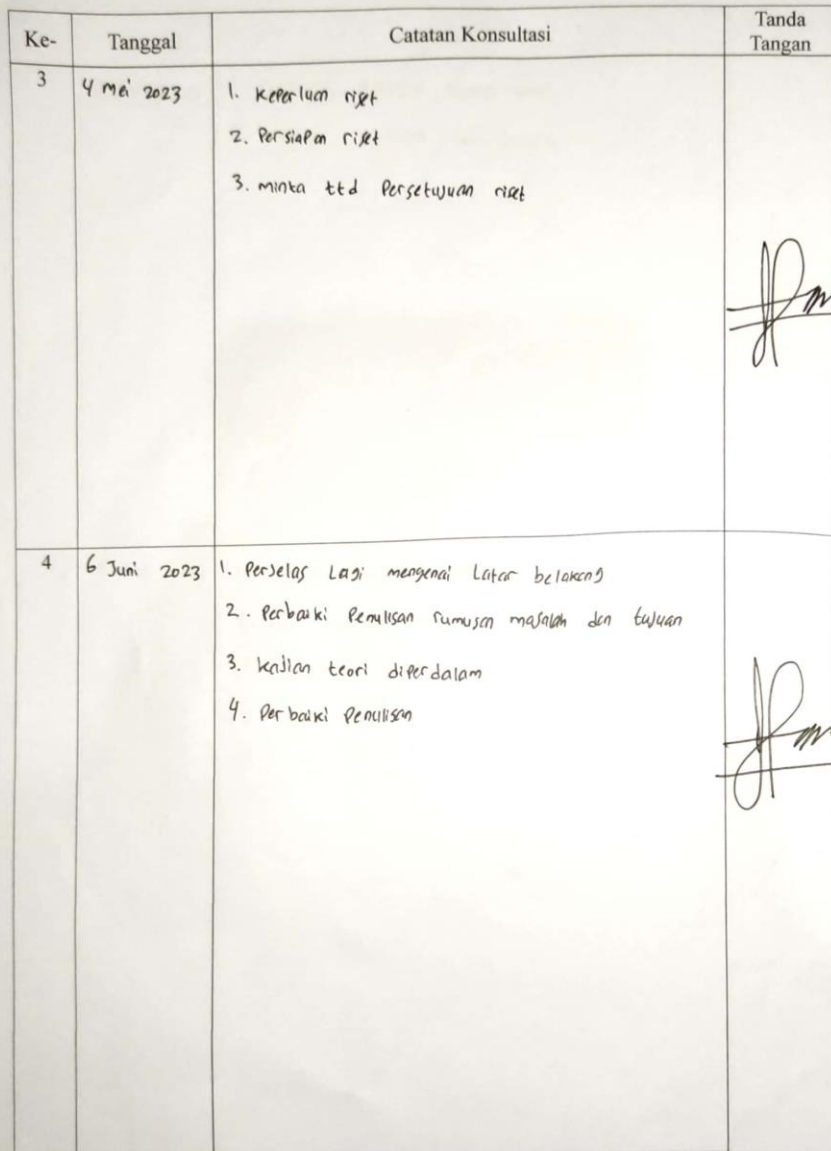 Ke- Tanggal Catatan Konsultasi Tanda Tangan
3 4 mei 2023 1. Keperluan riset
2. Persiapan riset
3. minta ttd Persetujuan riset
4 6 Juni 2023 1. Perjelas Lagi mengenai Latar belakang
2. Perbaiki Penulisan rumusan masalah dan tujuan
3. kajian teori diperdalam
4. Perbaiki Penulisan